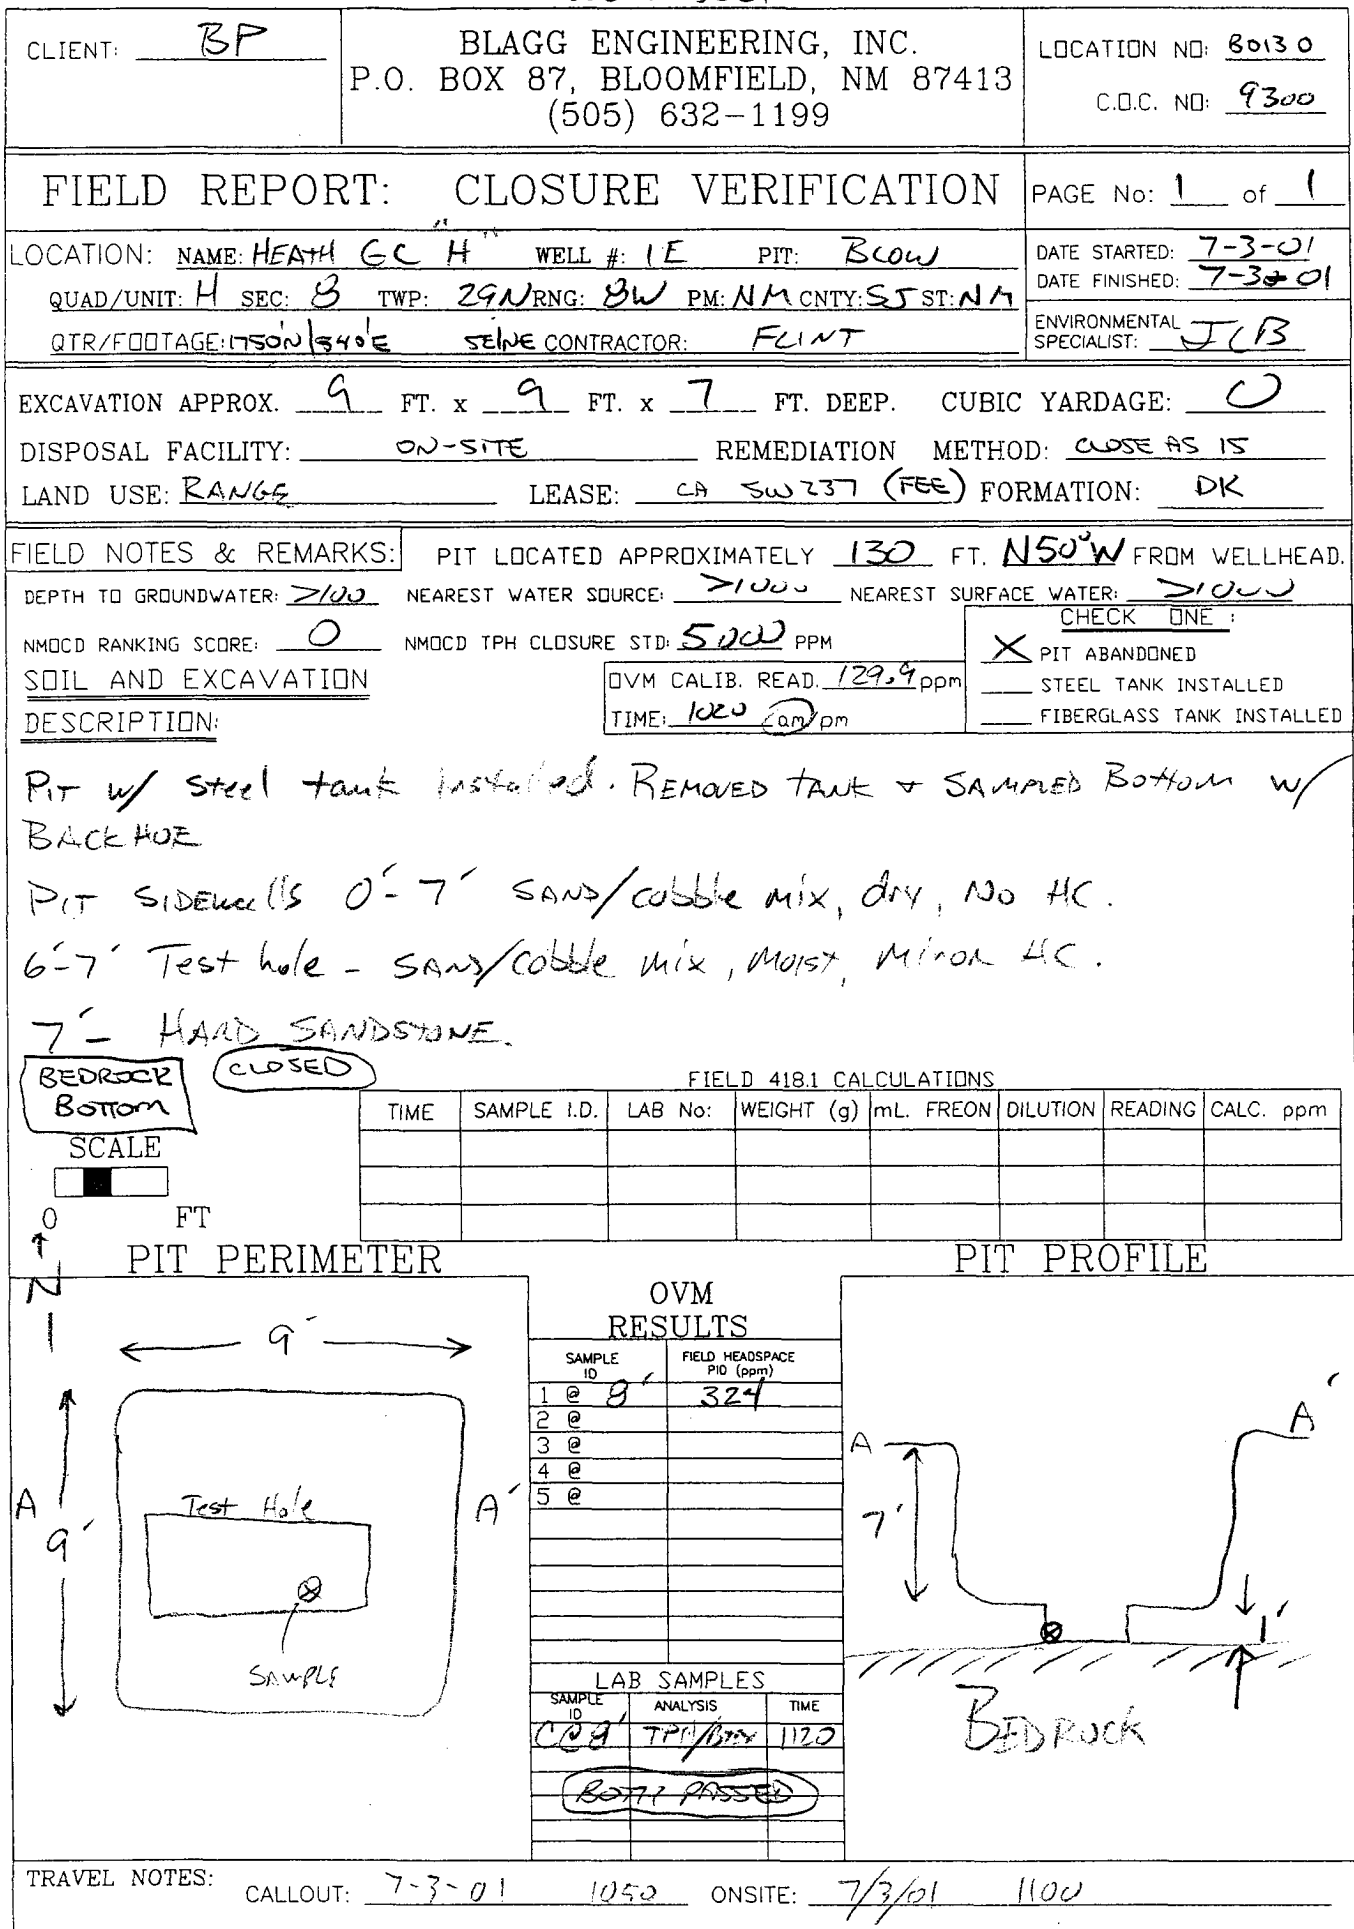 CLIENT: BP
BLAGG ENGINEERING, INC.
P.O. BOX 87, BLOOMFIELD, NM 87413
(505) 632-1199
LOCATION NO: B0130
C.O.C. NO: 9300
FIELD REPORT: CLOSURE VERIFICATION
PAGE No: 1 of 1
LOCATION: NAME: HEATH GC "H" WELL #: 1E PIT: BLOW
QUAD/UNIT: H SEC: 8 TWP: 29N RNG: 8W PM: NM CNTY: SJ ST: NM
QTR/FOOTAGE: 1750'N/840'E SE/NE CONTRACTOR: FLINT
DATE STARTED: 7-3-01
DATE FINISHED: 7-3-01
ENVIRONMENTAL
SPECIALIST: JCB
EXCAVATION APPROX. 9 FT. x 9 FT. x 7 FT. DEEP. CUBIC YARDAGE: 0
DISPOSAL FACILITY: ON-SITE REMEDIATION METHOD: CLOSE AS IS
LAND USE: RANGE LEASE: CA SW237 (FEE) FORMATION: DK
FIELD NOTES & REMARKS: PIT LOCATED APPROXIMATELY 130 FT. N50°W FROM WELLHEAD.
DEPTH TO GROUNDWATER: >100 NEAREST WATER SOURCE: >1000 NEAREST SURFACE WATER: >1000
NMOCD RANKING SCORE: 0 NMOCD TPH CLOSURE STD: 5000 PPM
CHECK ONE :
X PIT ABANDONED
STEEL TANK INSTALLED
FIBERGLASS TANK INSTALLED
SOIL AND EXCAVATION
DESCRIPTION:
OVM CALIB. READ. 129.9 ppm
TIME: 1020 am/pm
PIT w/ Steel tank installed. REMOVED TANK + SAMPLED BOTTOM w/
BACKHOE
PIT SIDEWALLS 0'-7' SAND/cobble mix, dry, NO HC.
6'-7' Test hole - SAND/cobble mix, MOIST, MINOR HC.
7'- HARD SANDSTONE.
BEDROCK
BOTTOM
CLOSED
SCALE
0 FT
FIELD 418.1 CALCULATIONS
TIME SAMPLE I.D. LAB No: WEIGHT (g) mL. FREON DILUTION READING CALC. ppm
N
PIT PERIMETER
PIT PROFILE
9'
A
9'
Test Hole
SAMPLE
A'
OVM
RESULTS
SAMPLE ID FIELD HEADSPACE PID (ppm)
1 @ 8' 324
2 @
3 @
4 @
5 @
LAB SAMPLES
SAMPLE ID ANALYSIS TIME
C@8' TPH/BTEX 1120
BOTH PASSED
A
A'
7'
1'
BEDROCK
TRAVEL NOTES: CALLOUT: 7-3-01 1050 ONSITE: 7/3/01 1100